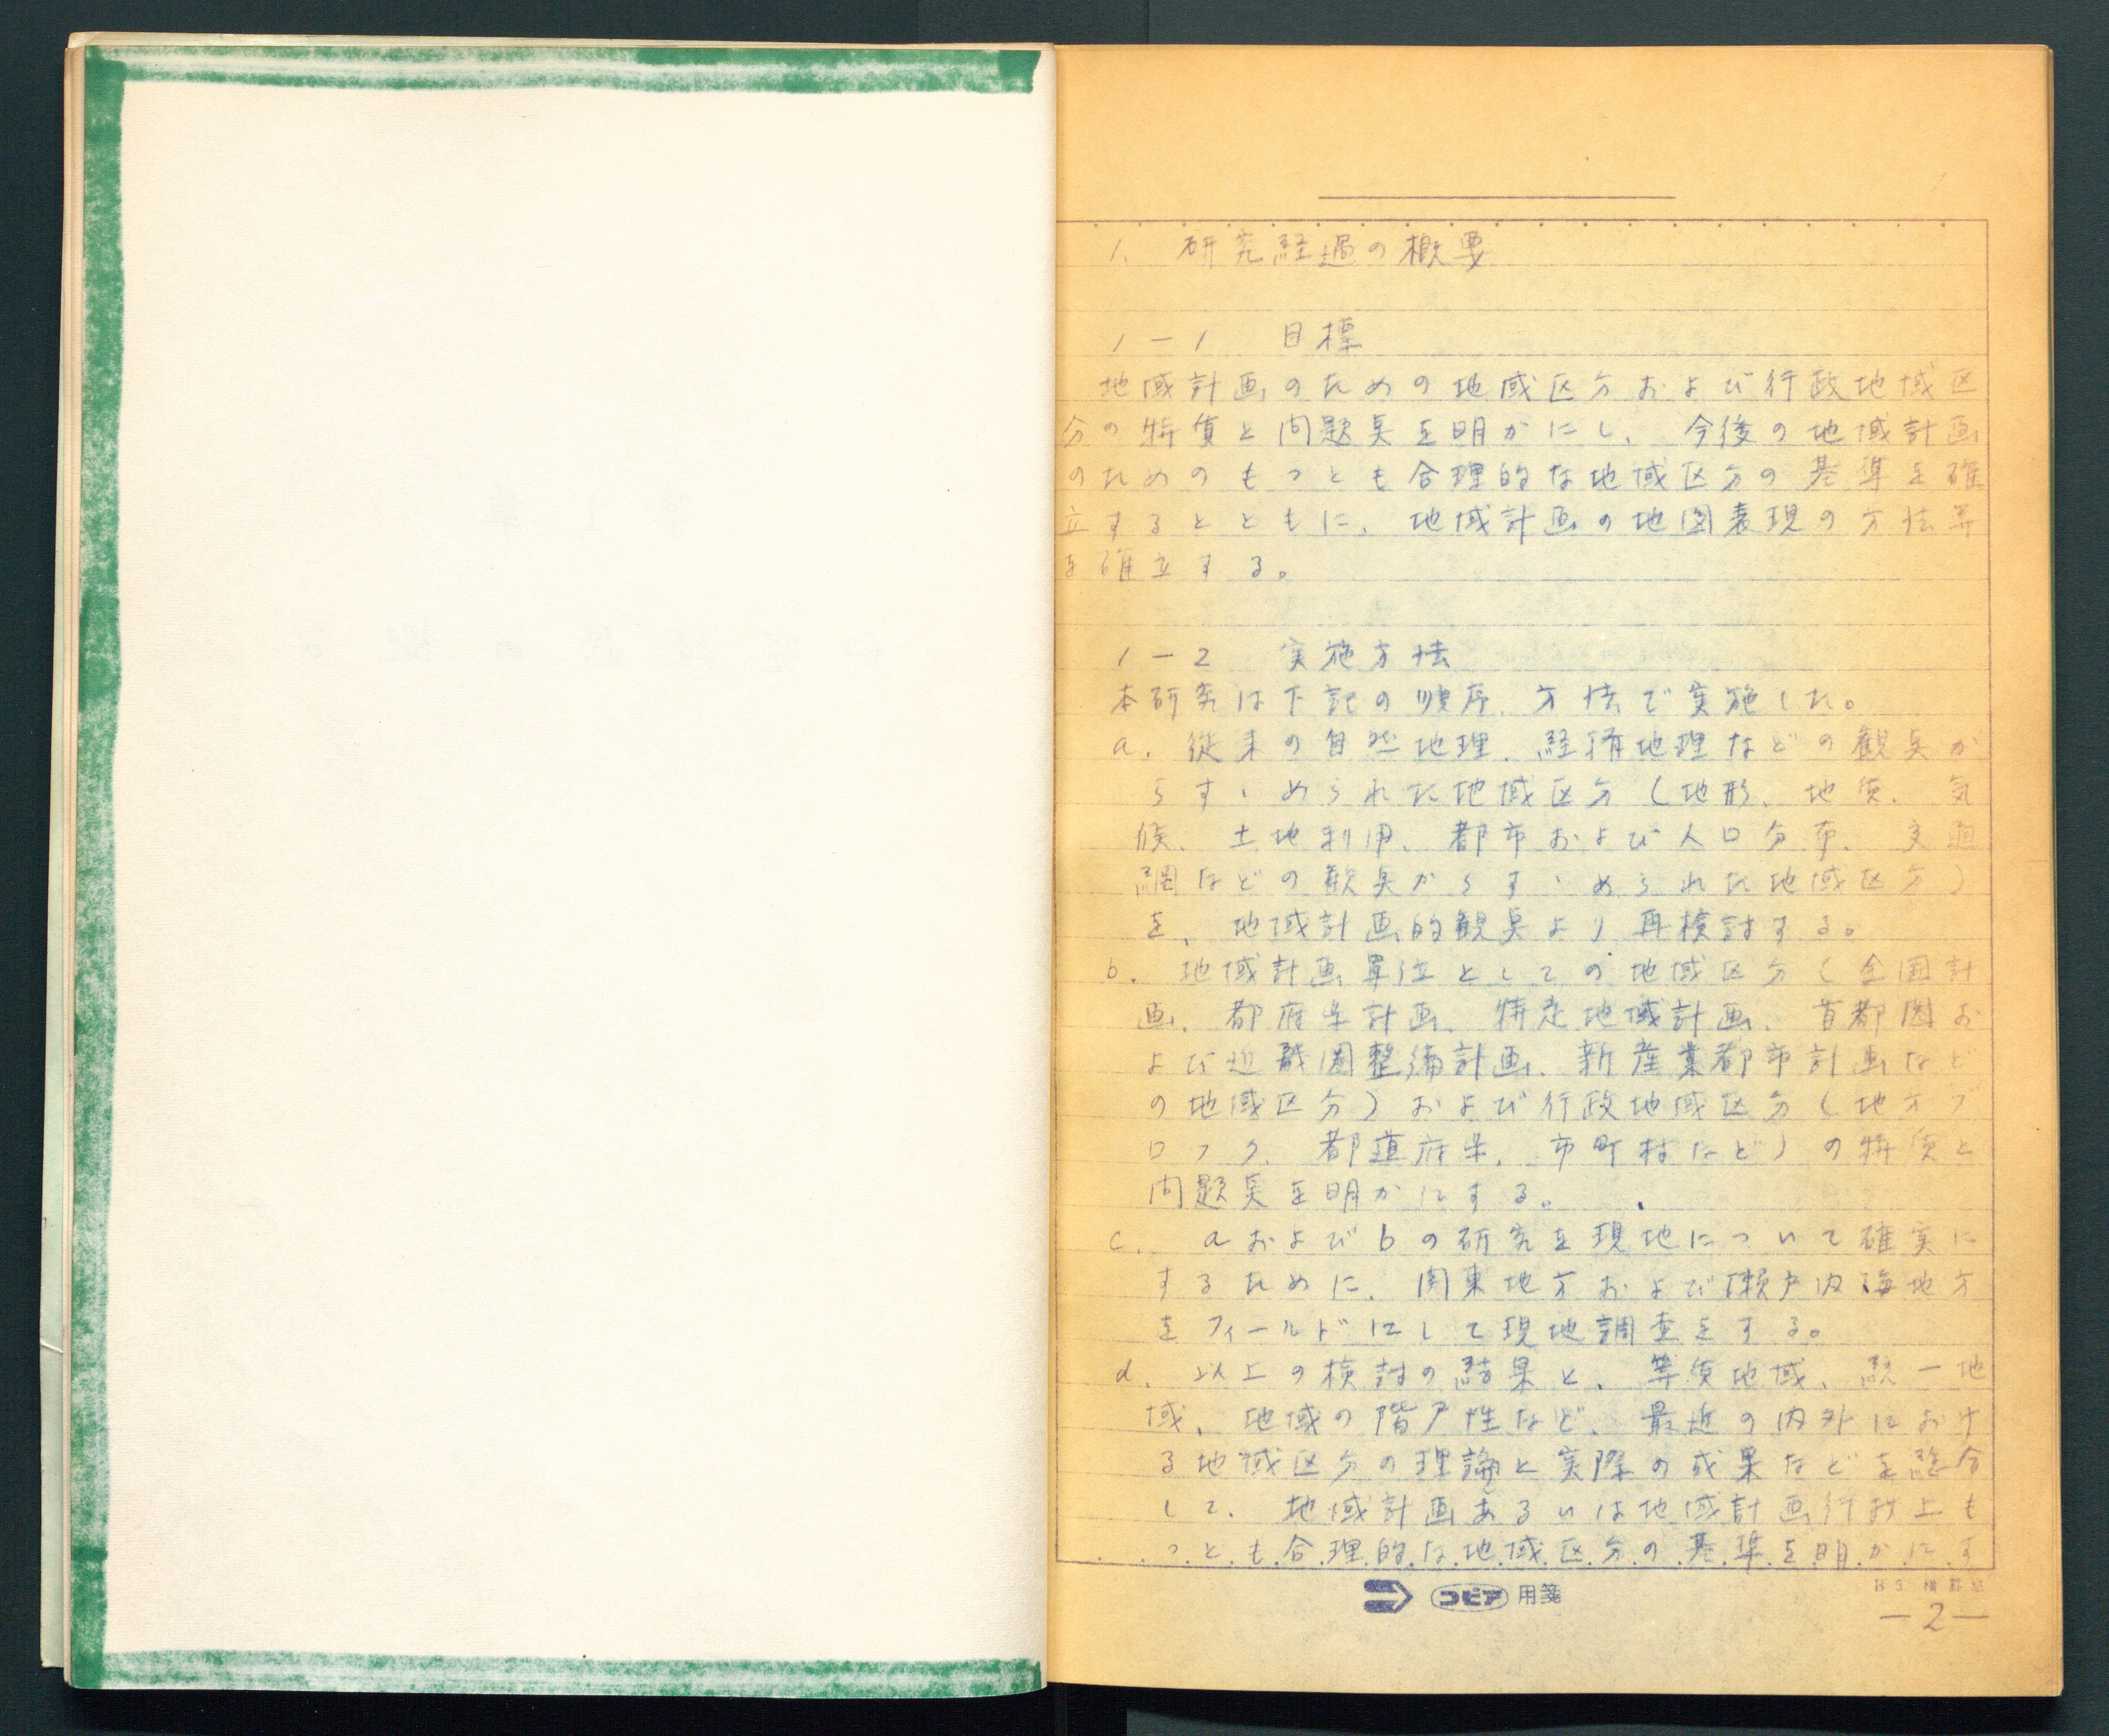 1. 研究経過の概要
1-1 目標
地域計画のための地域区分および行政地域区
分の特質と問題点を明かにし、今後の地域計画
のためのもつとも合理的な地域区分の基準を確
立するとともに、地域計画の地図表現の方法等
を確立する。
1-2 実施方法
本研究は下記の順序、方法で実施した。
a. 従来の自然地理、経済地理などの観点か
らすゝめられた地域区分(地形、地質、気
候、土地利用、都市および人口分布、交通
網などの観点からすゝめられた地域区分)
を、地域計画的観点より再検討する。
b. 地域計画単位としての地域区分(全国計
画、都府県計画、特定地域計画、首都圏お
よび近畿圏整備計画、新産業都市計画など
の地域区分)および行政地域区分(地方ブ
ロック、都道府県、市町村など)の特質と
問題点を明かにする。
c. aおよびbの研究を現地について確実に
するために、関東地方および瀬戸内海地方
をフィールドにして現地調査をする。
d. 以上の検討の結果と、等質地域、統一地
域、地域の階層性など、最近の内外におけ
る地域区分の理論と実際の成果などを総合
して、地域計画あるいは地域計画行政上も
つとも合理的な地域区分の基準を明かにす
コピア 用箋
B5 横罫
—2—